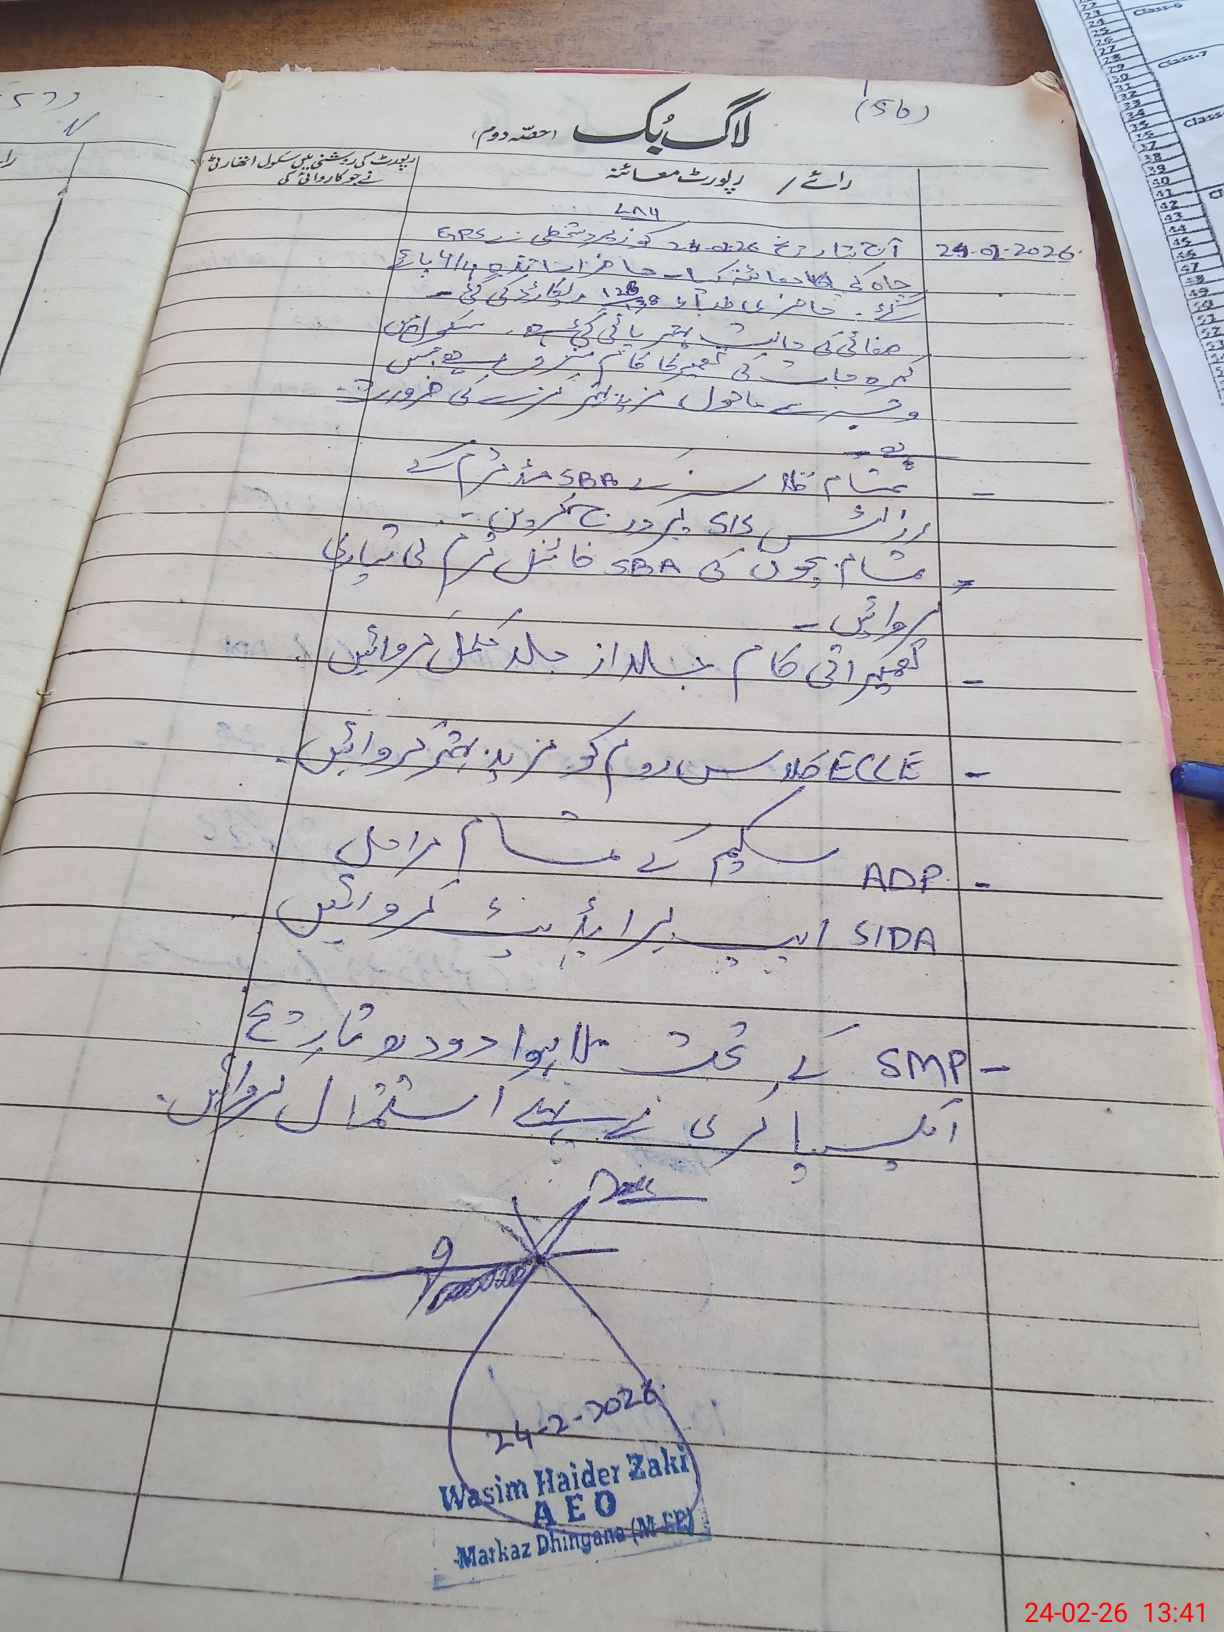 (56)
لاگ بُک (حصّہ دوم)
رائے / رپورٹ معائنہ
رپورٹ کی روشنی میں سکول اتھارٹی
نے جو کاروائی کی
۷۸۶
24-02-2026
آج بتاریخ 24-02-26 کو زیر دستخطی نے GPS
چاہ کی کا معائنہ کیا۔ حاضر اساتذہ 4/4 پائے
گئے۔ حاضر طلبہ 128/138 ریکارڈ کی گئی۔
صفائی کی حالت بہتر پائی گئی ہے۔ سکول میں
کمرہ جات کی تعمیر کا کام ہے جس
وجہ سے ماحول مزید بہتر کرنے کی ضرورت
ہے۔
- تمام کلاسز کے SBA مڈ ٹرم کے
رزلٹس SIS پر درج کریں۔
- تمام بچوں کی SBA فائنل ٹرم کی تیاری
کروائیں۔
- تعمیراتی کام جلد از جلد مکمل کروائیں۔
- ECCE کلاس روم کو مزید بہتر کروائیں۔
- ADP سکیم کے تمام مراحل
SIDA ایپ پر اپڈیٹ کروائیں
- SMP کے تحت ملا ہوا دودھ تاریخ
ایکسپائری سے پہلے استعمال کروائیں۔
24-2-2026
Wasim Haider Zaki
AEO
Markaz Dhingana (M-EE)
Class-6
Class-7
24-02-26 13:41